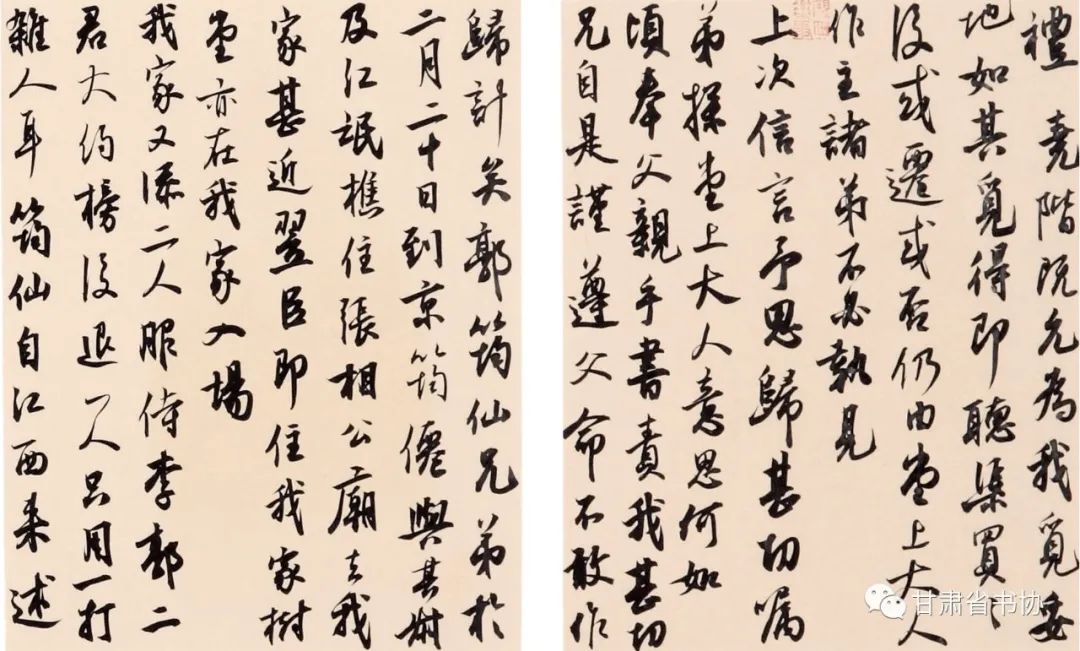 禮 堯階既允為我覓妥
地如其覓得即聽渠買下
後或遷或否仍由堂上大人
作主諸弟不必執見
上次信言予思歸甚切囑
弟探堂上大人意思何如
頃奉父親手書責我甚切
兄自是謹遵父命不敢作
歸計矣郭筠仙兄弟於
二月二十日到京筠僊與其叔
及江岷樵住張相公廟去我
家甚近翌臣即住我家樹
堂亦在我家入場
我家又添二人服侍李郭二
君大約榜後退一人只用一打
雜人耳筠仙自江西來述
甘肃省书协